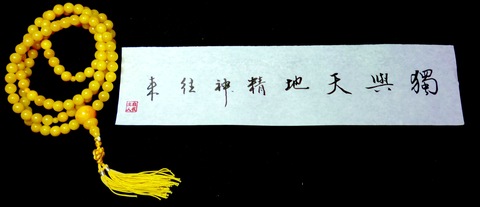 獨與天地精神往来